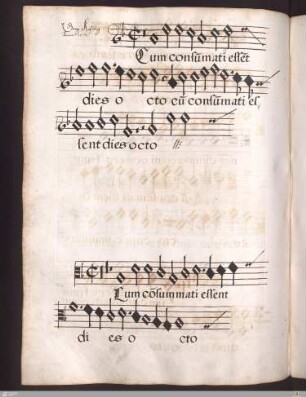 Cum consumati essēt
dies o cto cū consūmati es,
sent dies octo
Cum cōsummati essent
di es o cto